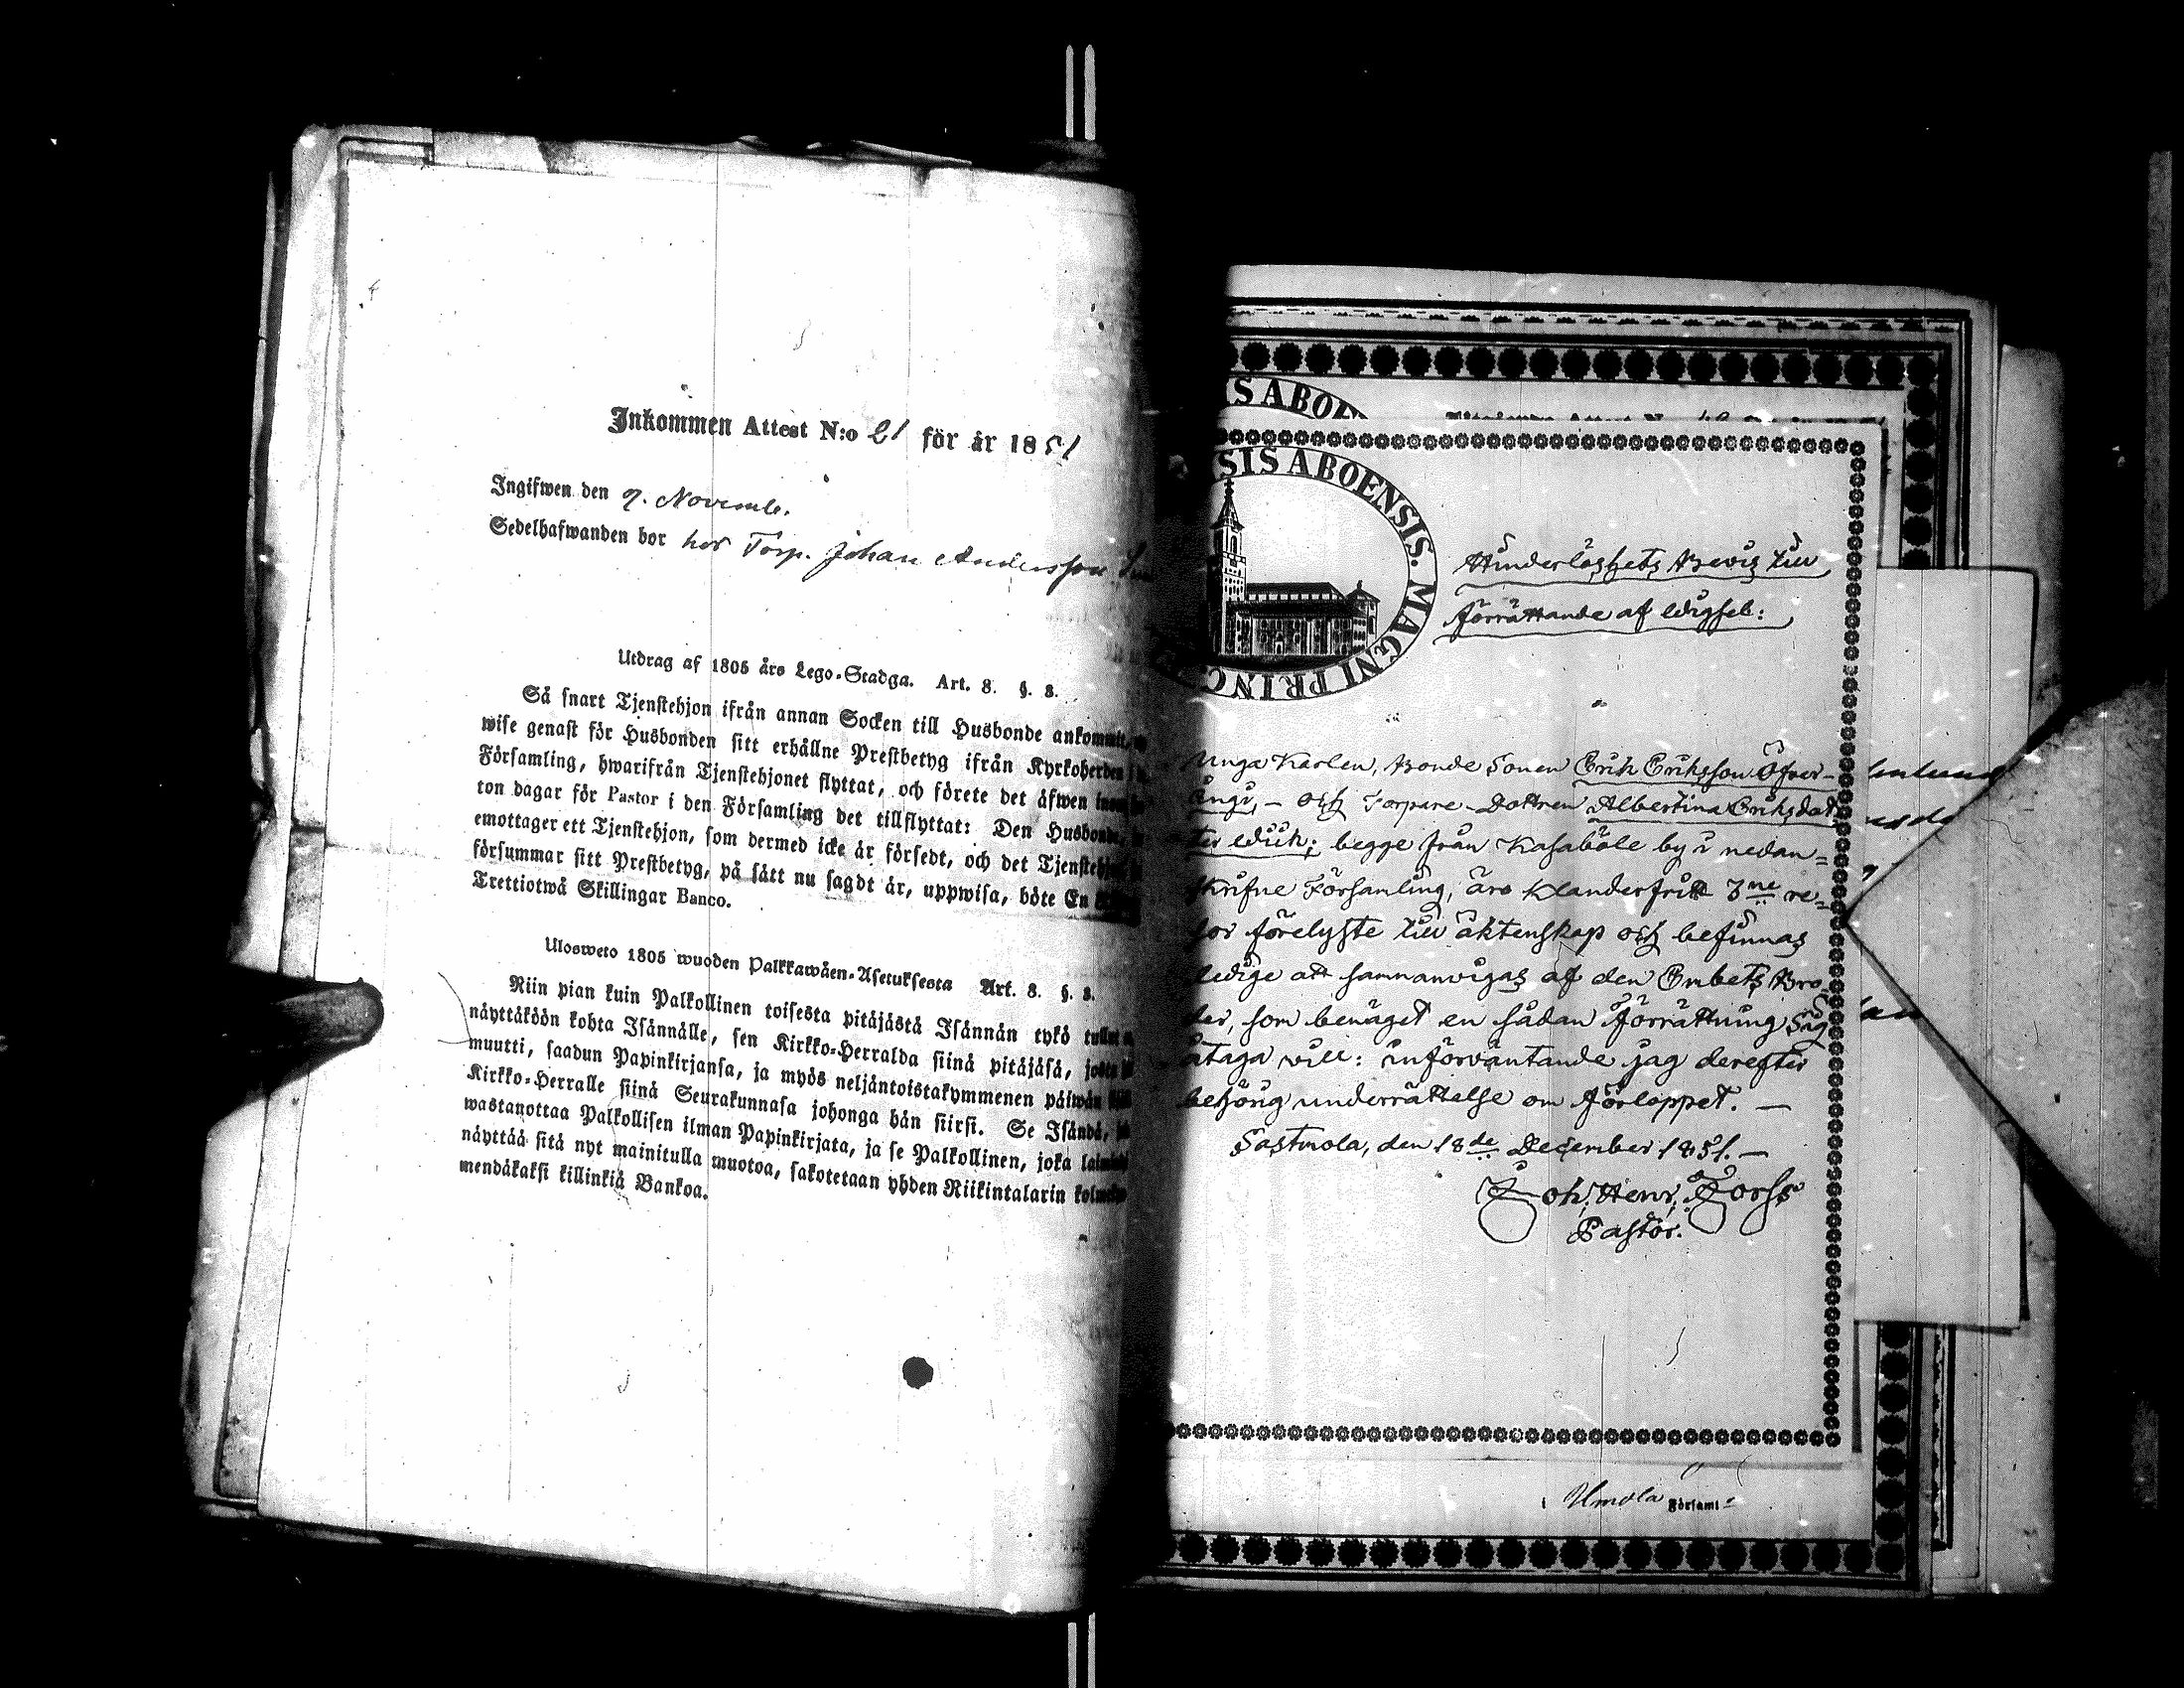 Inkommen Attest N:o 21 för år 1851
Ingifwen den 7. Novemb.
Sedelhafwanden bor hos Torp. Johan Andersson
Utdrag af 1805 års Lego-Stadga. Art. 8. §. 8.
Så snart Tjenstehjon ifrån annan Socken till Husbonde ankommit,
wise genast för Husbonden sitt erhållne Prestbetyg ifrån Kyrkoherden
Församling, hwarifrån Tjenstehjonet flyttat, och förete det äfwen inom
ton dagar för Pastor i den Församling det tillflyttat: Den Husbonde,
emottager ett Tjenstehjon, som dermed icke är försedt, och det Tjenstehjon
försummar sitt Prestbetyg, på sätt nu sagdt är, uppwisa, böte En
Trettiotwå Skillingar Banco.
Ulosweto 1805 wuoden Palkkawäen-Asetuksesta Art. 8. §. 8.
Niin pian kuin Palkollinen toisesta pitäjästä Isännän tykö tullut
näyttäköön kohta Isännälle, sen Kirkko-Herralda siinä pitäjäsä, josta
muutti, saadun Papinkirjansa, ja myös neljäntoistakymmenen päiwän
Kirkko-Herralle siinä Seurakunnasa johonga hän siirsi. Se Isändä,
wastanottaa Palkollisen ilman Papinkirjata, ja se Palkollinen, joka
näyttää sitä nyt mainitulla muotoa, sakotetaan yhden Riikintalarin
mendäkaksi killinkiä Bankoa.
IS ABOE
SIS ABOENSIS. MAGNI PRINC
Hinderlöshets Bevis till
förrättande af Wigsel:
Unga Karlen, Bonde Sonen Erik Eriksson Öfver-
ängs, - och Torpare-Dottren Albertina Eriksdot-
ter Wiik; begge från Kasaböle by i nedan-
skrifne Församling, äro klanderfritt 3ne re-
sor förelyste till äktenskap och befinnas
ledige att sammanvigas af den Embets Bro-
der, som benäget en sådan förrättning Sig
åtaga vill: införväntande jag derefter
behörig underrättelse om förloppet. —
Sastmola, den 18de December 1851. —
Joh. Henr. Forss
Pastor.
i Ulmola Församl